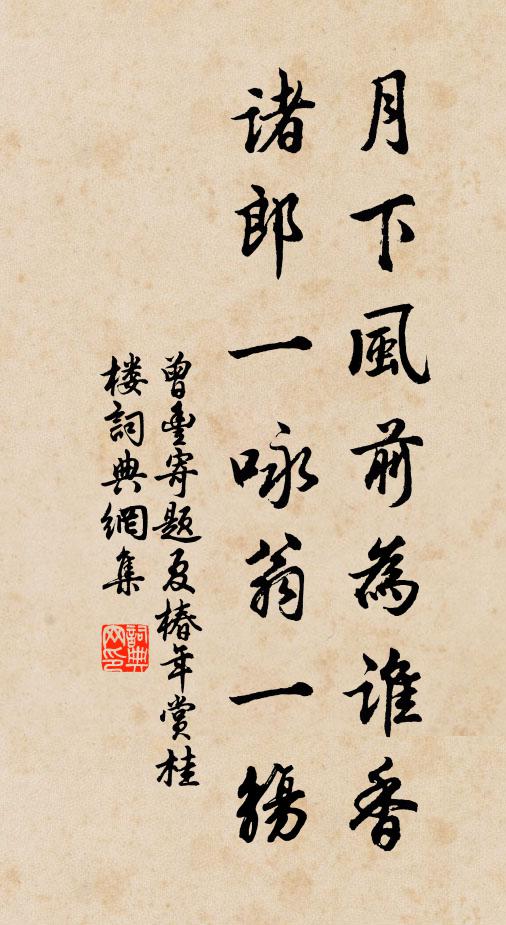 月下風前為誰香
諸郎一咏翁一觴
曾豐寄題夏椿年賞桂
樓詞典網集
詞典網印